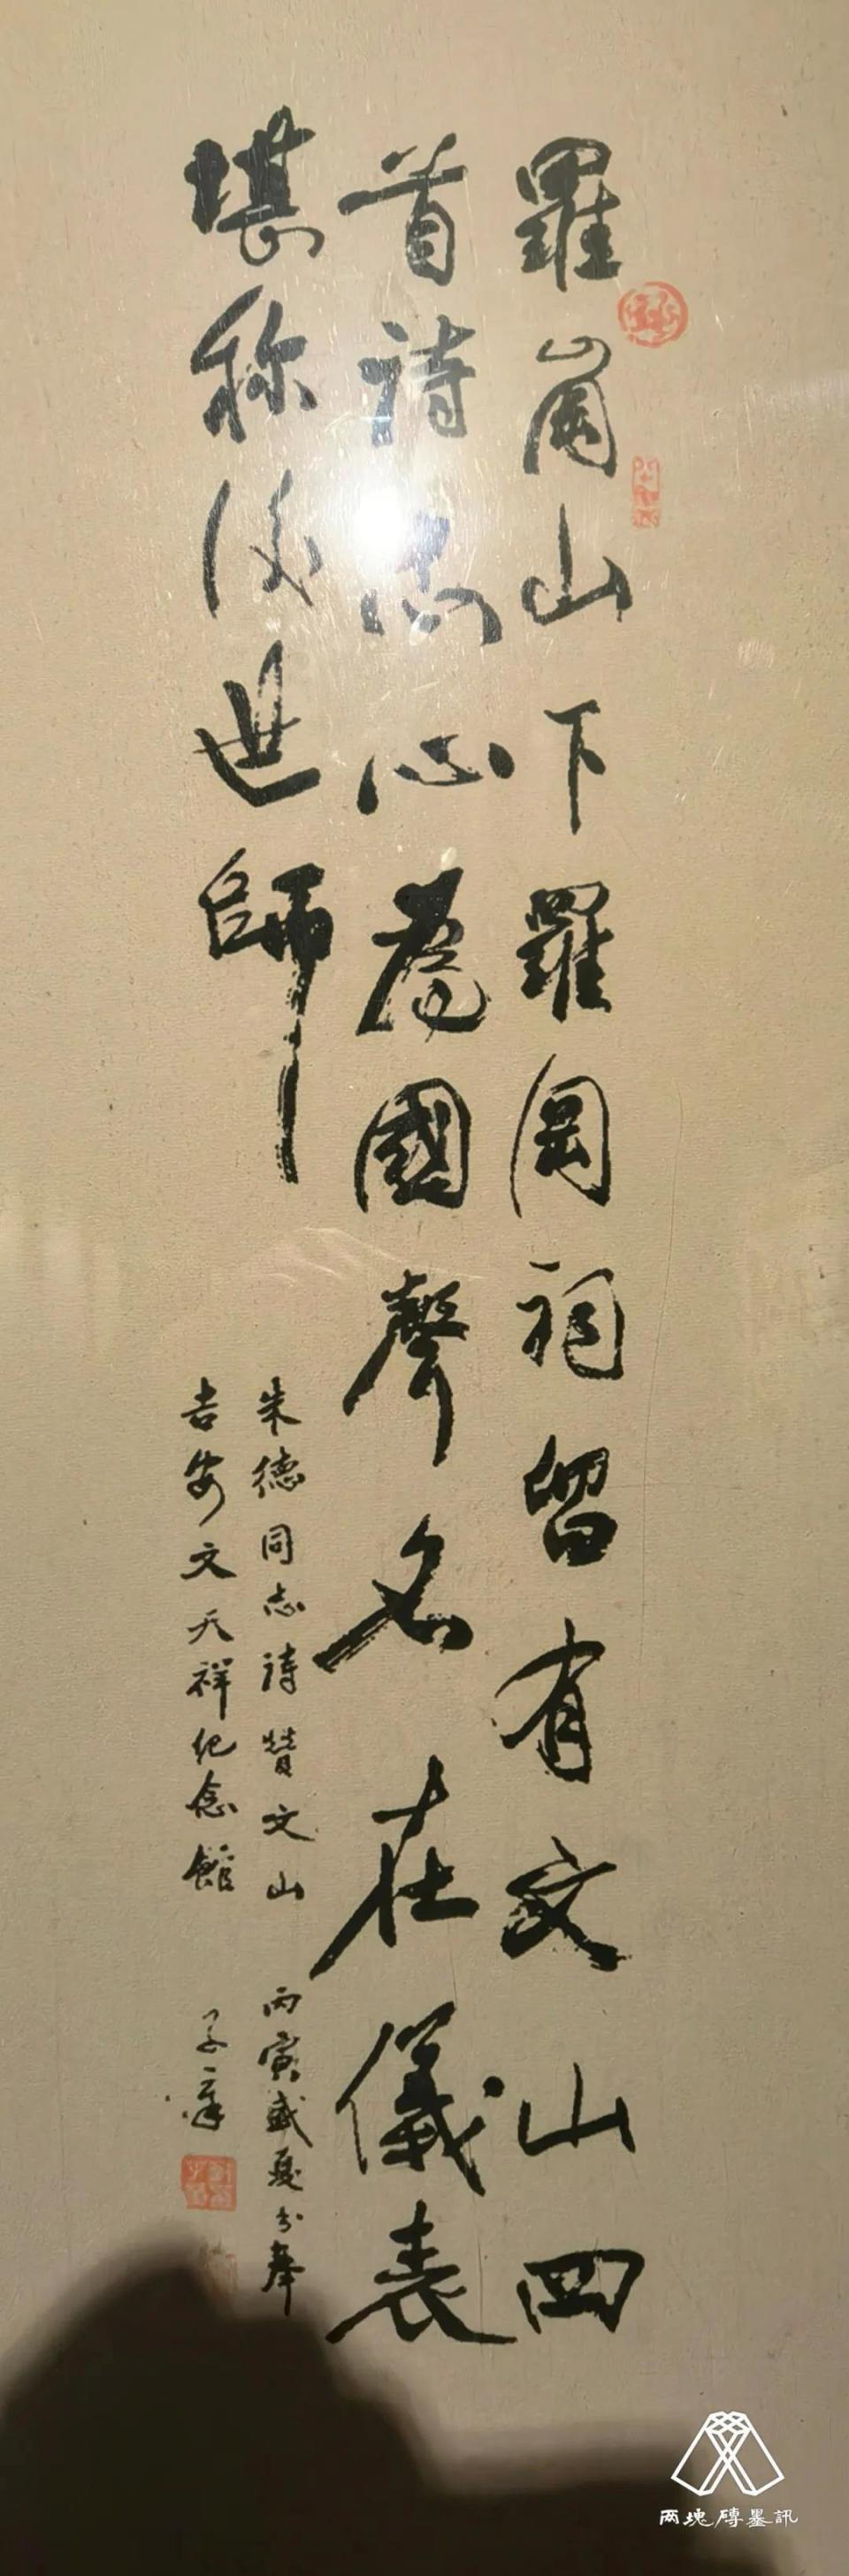 羅崗山下羅岡祠留有文山四
首詩忠心為國聲名在儀表
堪称後世師
朱德同志詩贊文山
丙寅盛夏
吉安文天祥纪念館
两塊磚墨訊